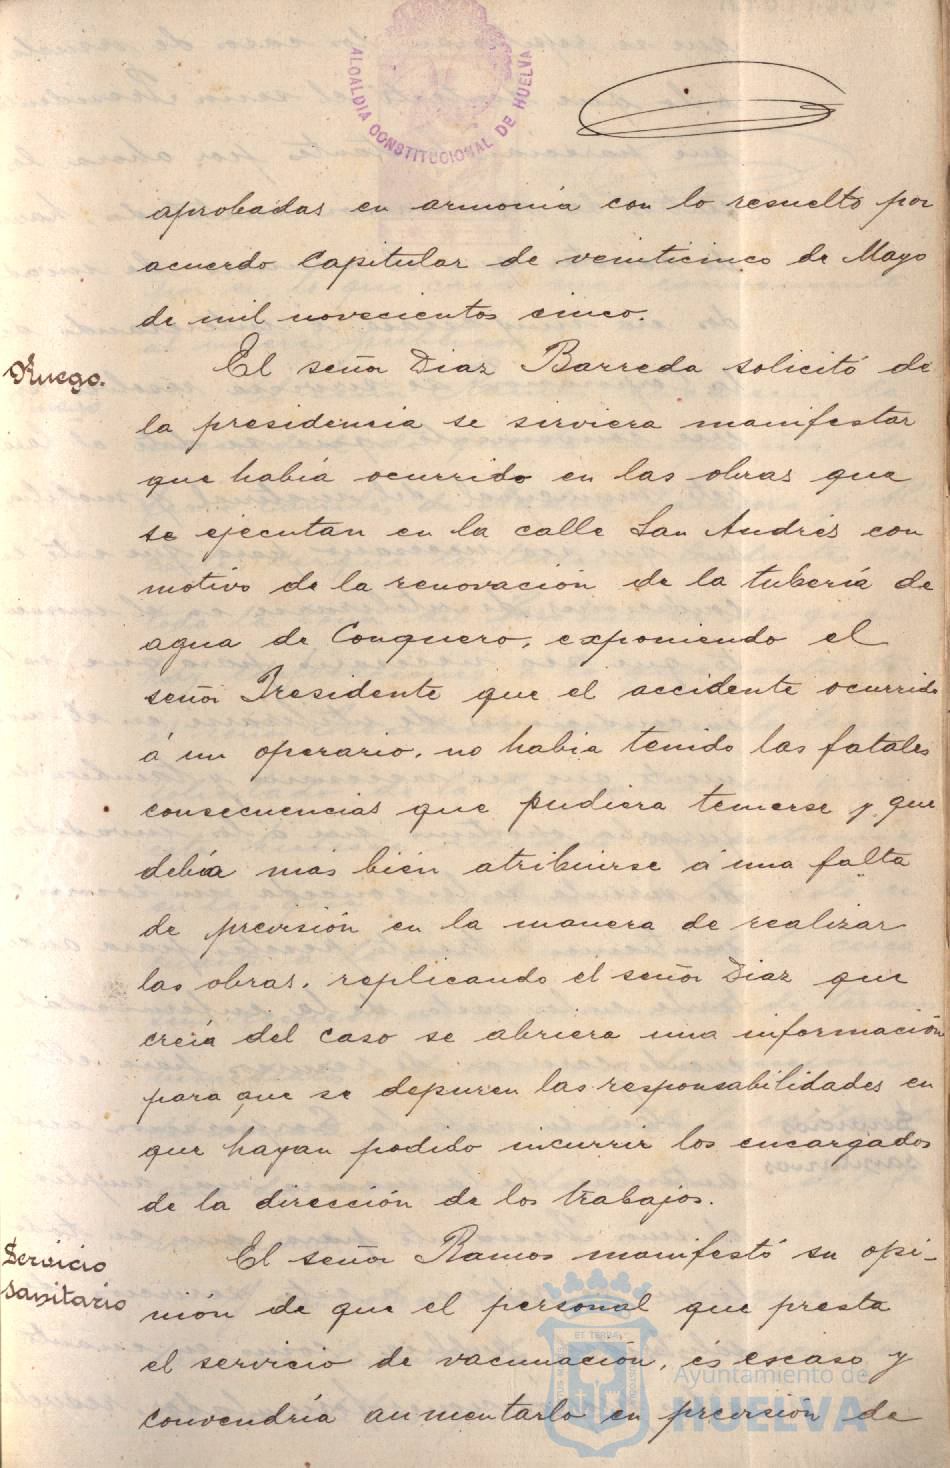 ALCALDIA CONSTITUCIONAL DE HUELVA
aprobadas en armonía con lo resuelto por
acuerdo Capitular de veinticinco de Mayo
de mil novecientos cinco.
Ruego.
El señor Diaz Barreda solicitó de
la presidencia se sirviera manifestar
que había ocurrido en las obras que
se ejecutan en la calle San Andrés con
motivo de la renovación de la tubería de
agua de Conquero, exponiendo el
señor Presidente que el accidente ocurrido
á un operario, no había tenido las fatales
consecuencias que pudiera temerse y que
debía más bién atribuirse á una falta
de previsión en la manera de realizar
las obras, replicando el señor Diaz que
creía del caso se abriera una información
para que se depuren las responsabilidades en
que hayan podido incurrir los encargados
de la dirección de los trabajos.
Servicio
sanitario
El señor Ramos manifestó su opi-
nión de que el personal que presta
el servicio de vacunación, és escaso y
convendría aumentarlo en previsión de
Ayuntamiento de
HUELVA